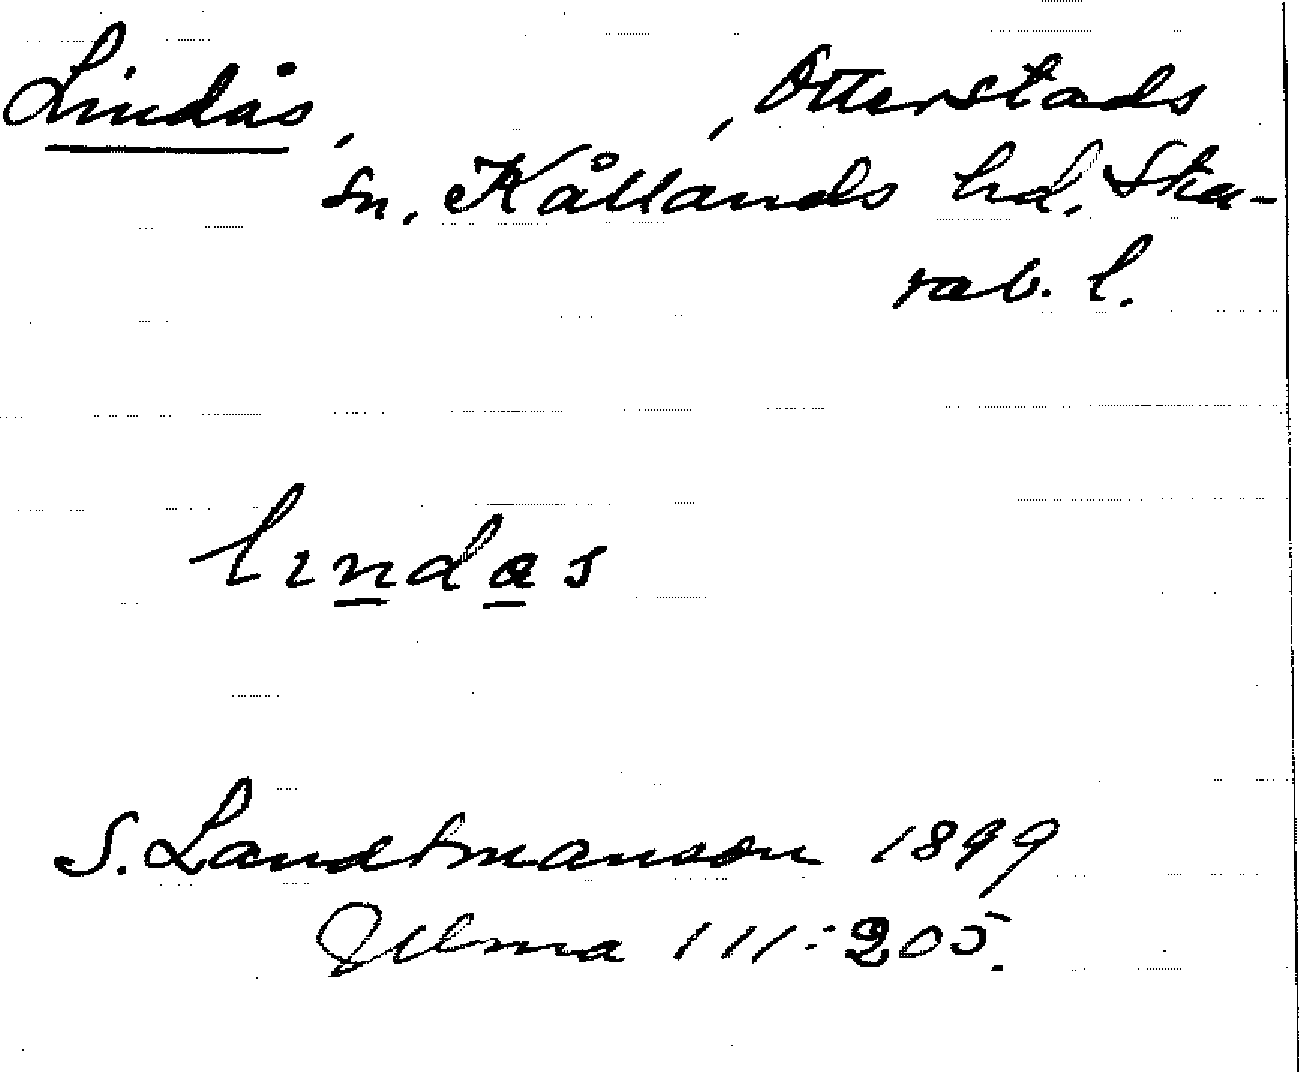 Lindås, , Otterstads
sn. Kållands hd. Ska-
rab. l.
lındas
S. Landtmanson 1899
Ulma 111:205.